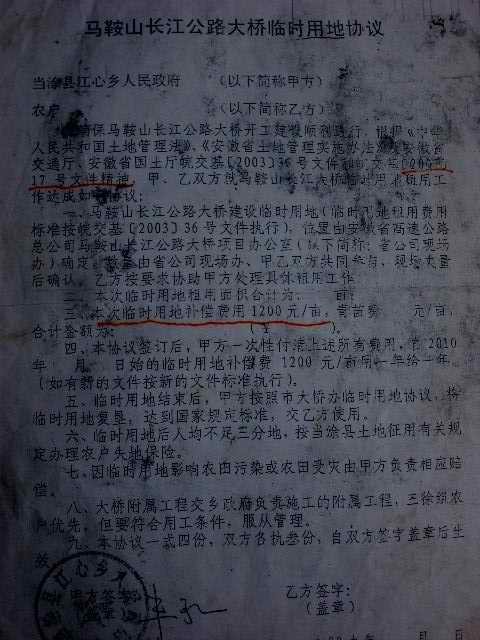 马鞍山长江公路大桥临时用地协议
当涂县江心乡人民政府 （以下简称甲方）
农户 （以下简称乙方）
保马鞍山长江公路大桥开工建设顺利进行，根据《中华
人民共和国土地管理法》、《安徽省土地管理实施办法》
交通厅、安徽省国土厅皖交基〔2003〕36号文件和
17号文件精神，甲、乙双方就马鞍山长江大桥临时用地租用工
作达成如下协议：
一、马鞍山长江公路大桥建设临时用地（临时用地租用费用
标准按皖交基〔2003〕36号文件执行），位置由安徽省高速公路
总公司马鞍山长江公路大桥项目办公室（以下简称：省公司现场
办）确定，数量由省公司现场办、甲乙双方共同参与，现场丈量
后确认，乙方按要求协助甲方处理具体租用工作。
二、本次临时用地租用面积合计为： 亩；
三、本次临时用地补偿费用1200元/亩，青苗费 元/亩，
合计金额为： （￥ ）。
四、本协议签订后，甲方一次性付清上述所有费用，在2010
年 月 日后的临时用地补偿费1200元/亩每一年给一年。
（如有新的文件按新的文件标准执行）。
五、临时用地结束后，甲方按照市大桥办临时用地协议，将
临时用地复垦，达到国家规定标准，交乙方使用。
六、临时用地后人均不足三分地，按当涂县土地征用有关规
定办理农户失地保险。
七、因临时用地影响农田污染或农田受灾由甲方负责相应赔
偿。
八、大桥附属工程交乡政府负责施工的附属工程，三徐组农
户优先，但要符合用工条件，服从管理。
九、本协议一式四份，双方各执叁份，自双方签字盖章后生
效。
甲方签字 乙方签字：
（盖章）